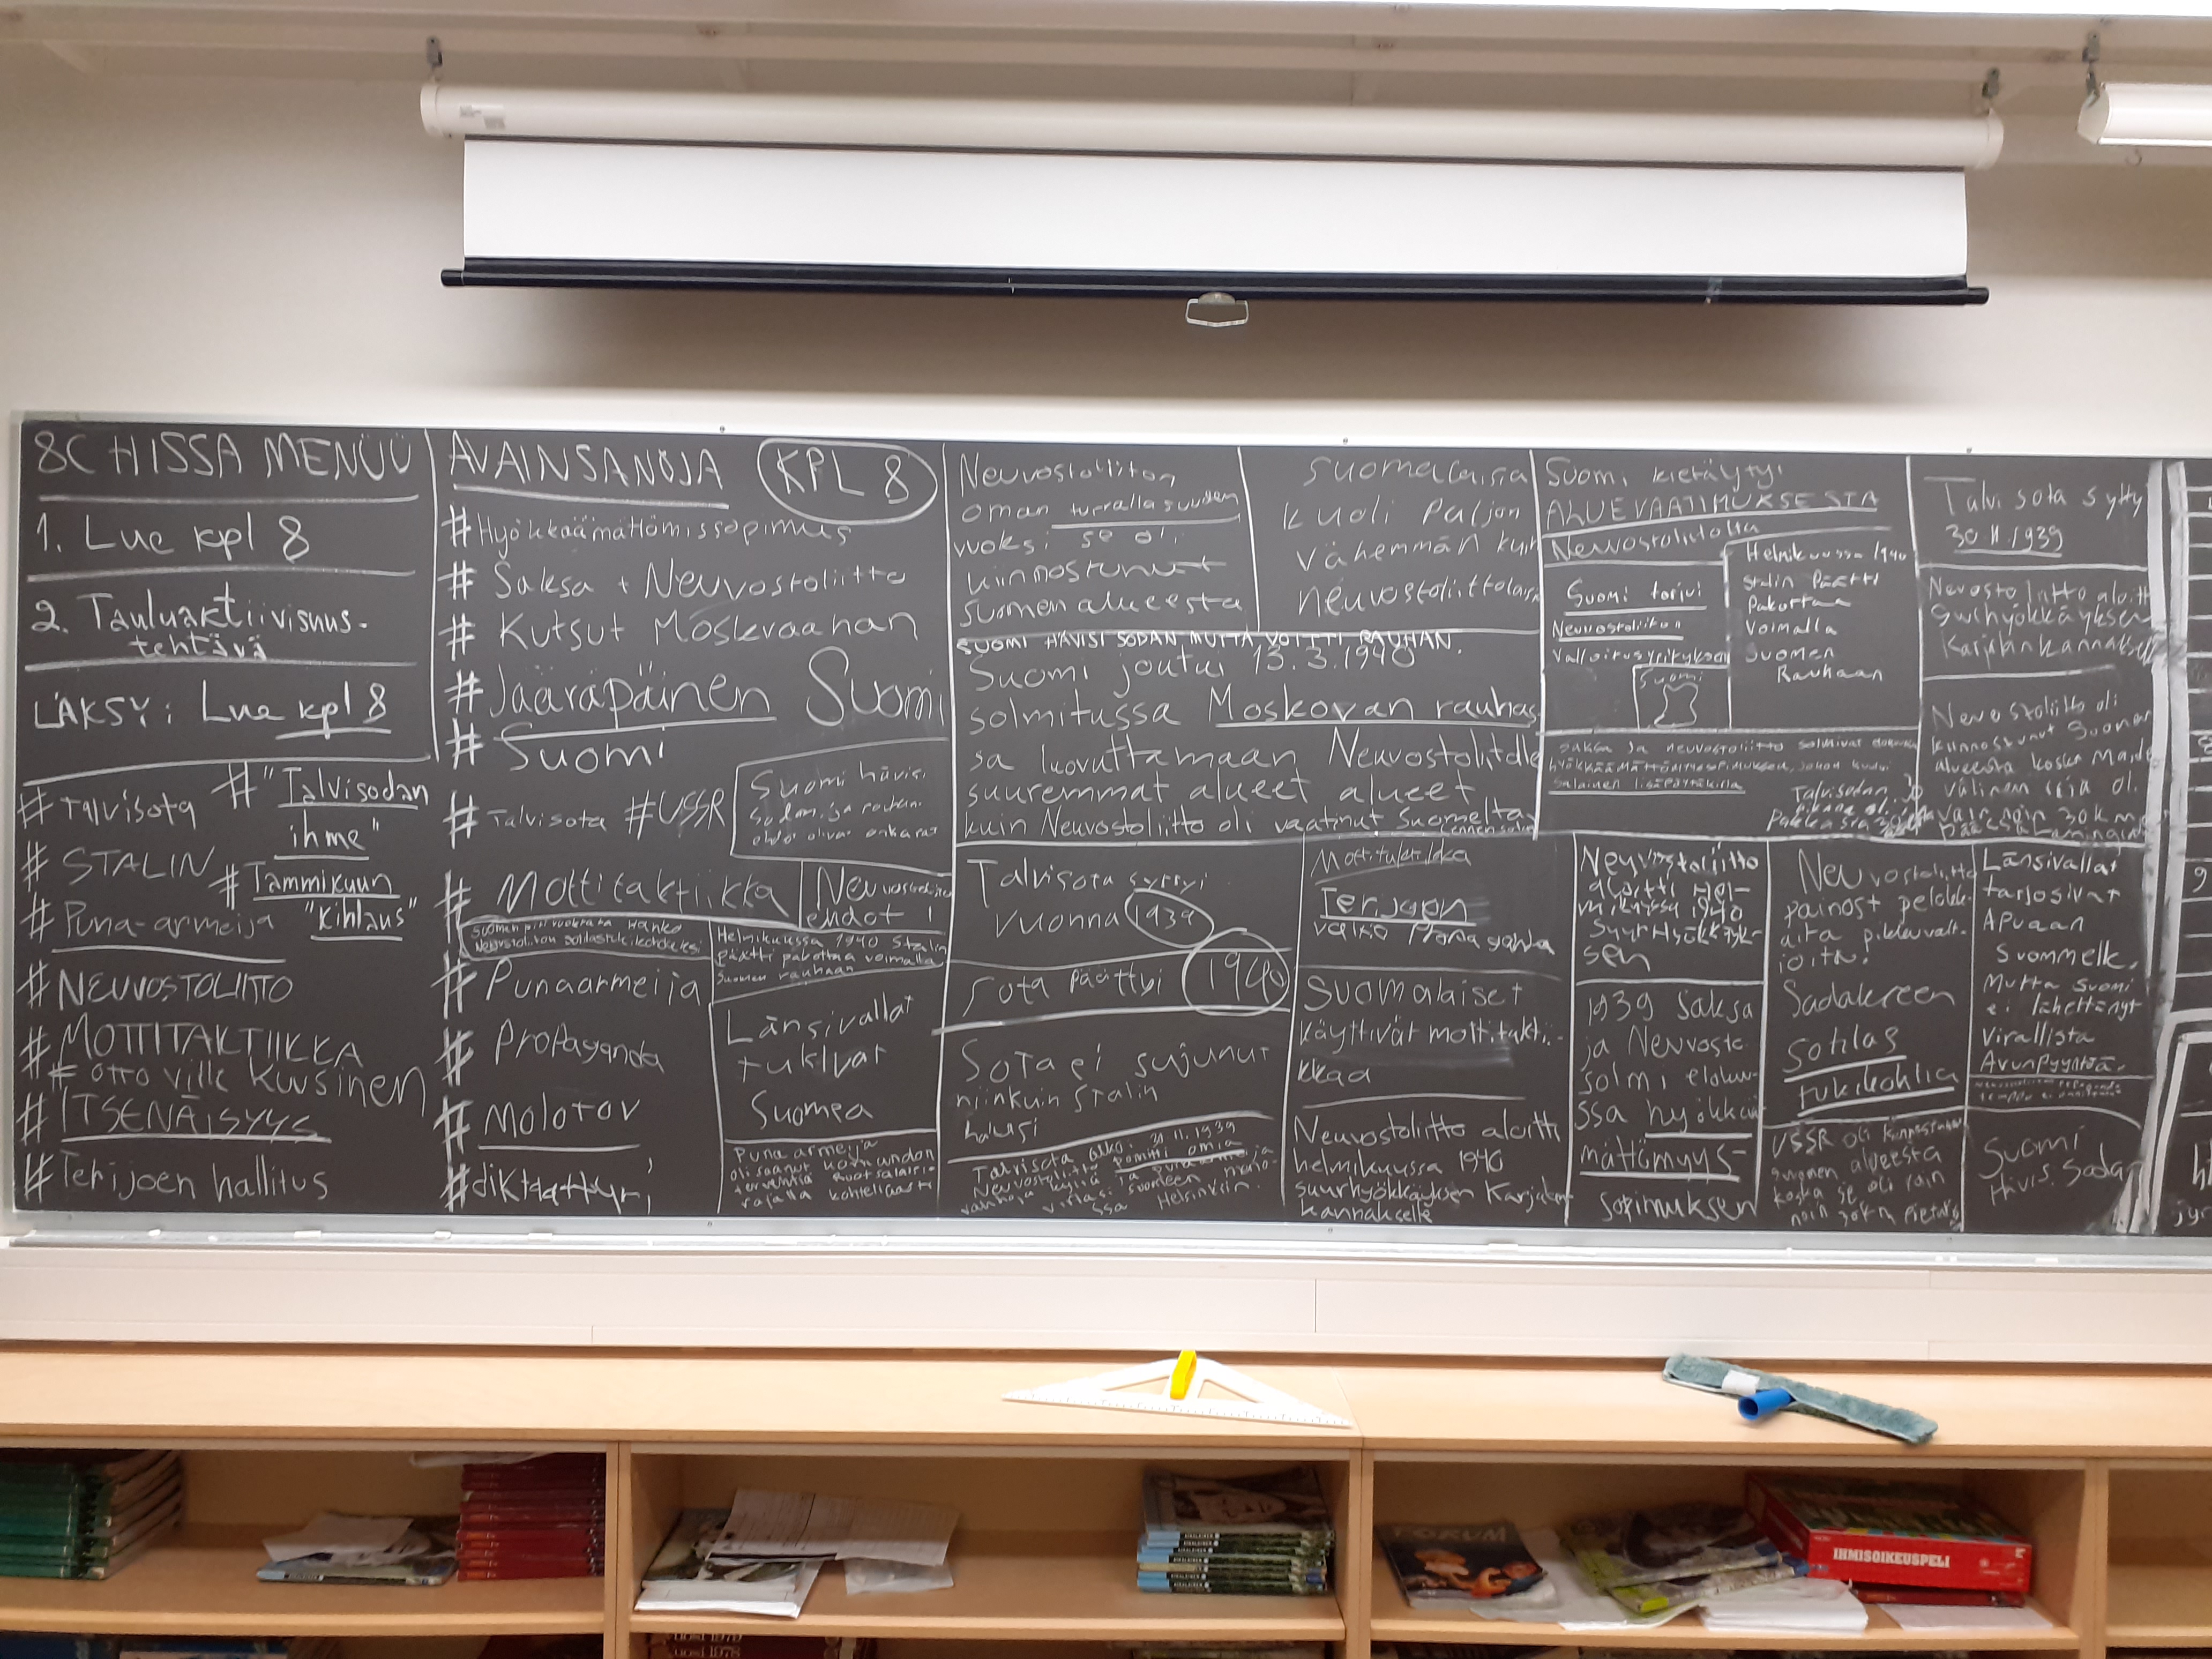 8C HISSA MENÜÜ
1. Lue kpl 8
2. Tauluaktiivisuus-
tehtävä
LÄKSY: Lue kpl 8
# Talvisota
# "Talvisodan
ihme"
# STALIN
# Tammikuun
"Kihlaus"
# Puna-armeija
# NEUVOSTOLIITTO
# MOTTITAKTIIKKA
# Otto Ville Kuusinen
# ITSENÄISYYS
# Terijoen hallitus
AVAINSANOJA
KPL 8
# Hyökkäämättömissopimus
# Saksa + Neuvostoliitto
# Kutsut Moskvaahan
# Jääräpäinen Suomi
# Suomi
# Talvisota #USSR
Suomi hävisi
sodan ja rauhan
ehdot olivat ankarat
# Mottitaktiikka
Neuvostoliiton
ehdot!
Suomen piti vuokrata Hanko
Neuvostoliiton sotilastukikohdaksi
Helmikuussa 1940 Stalin
päätti pakottaa voimalla
Suomen rauhaan
# Punaarmeija
# Propaganda
# Molotov
# diktaattyri
Länsivallat
tukivat
Suomea
Puna armeija
oli saanut komundon
tervehtiä Ruotsalaisia
rajalla kohteliaasti
Neuvostoliiton
oman turvallasuuden
vuoksi se oli
kiinnostunut
suomen alueesta
suomalaisia
kuoli Paljon
vähemmän kuin
neuvostoliittolaisia
SUOMI HÄVISI SODAN MUTTA VOITTI RAUHAN.
Suomi joutui 13.3.1940
solmitussa Moskovan rauhas
sa luovuttamaan Neuvostoliitolle
suuremmat alueet alueet
kuin Neuvostoliitto oli vaatinut Suomelta
ennen sotaa
Talvisota syttyi
vuonna 1939
Sota päättyi 1940
Sota ei sujunut
niinkuin Stalin
halusi
Talvisota alkoi 30.11.1939
Neuvostoliitto pommitti omia
Helsinkiin.
Mottitaktiikka
Terijoen
Suomalaiset
käyttivät mottitakti-
kkaa
Neuvostoliitto aloitti
helmikuussa 1940
suurhyökkäyksen Karjalan
kannakselle
Suomi kieläytyi
ALUEVAATIMUKSESTA
Neuvostoliitolta
Suomi torjui
Neuvostoliiton
Valloitusyrityksen
Suomi
Helmikuussa 1940
Stalin Päätti
Pakottaa
Voimalla
Suomen
Rauhaan
Saksa ja neuvostoliitto solmivat elokuussa
hyökkäämättömyyssopimuksen, johon kuului
salainen lisäpöytäkirja
Talvisodan
aikana oli
Pakkasia
Talvi sota sytty
30.11.1939
Nevosto liitto aloitt
suurhyökkäyksen
Karjalan kannaksell
Nevostoliitto oli
kiinnostunut Suomen
alueesta koska
välinen raja oli
vain noin 30km
Neuvostoliitto
aloitti hel-
mikuussa 1940
Suurhyökkäyk-
sen
1939 Saksa
ja Neuvosto
solmi eloku-
ssa hyökkää
mättömyys-
sopimuksen
Neuvostoliitto
painost pelotel-
aita pikkuvalt-
ioita.
Sadakseen
sotilas
tukikohtia
USSR oli kiinnostunut
suomen alueesta
koska se oli vain
noin 30km Pietarista
Länsivallat
tarjosivat
Apuaan
Suommelle,
Mutta Suomi
ei lähettänyt
Virallista
Avunpyyntöä.
Suomi
Hävisi Sodan
FORUM
IHMISOIKEUSPELI